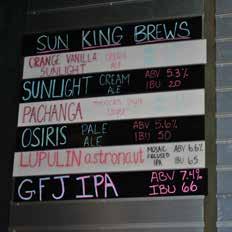 SUN KING BREWS
ORANGE VANILLA CREAM
SUNLIGHT ALE
SUNLIGHT CREAM ABV 5.3%
ALE IBU 20
PACHANGA
OSIRIS PALE ABV 5.6%
ALE IBU 50
LUPULIN astronaut MOSAIC FOCUSED IPA ABV 6.6%
IBU 65
GFJ IPA ABV 7.4%
IBU 66